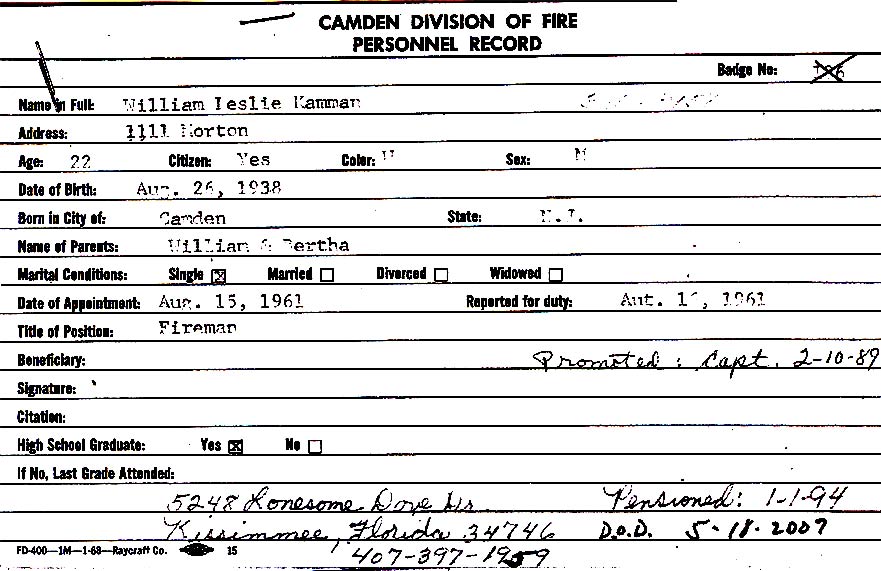 CAMDEN DIVISION OF FIRE
PERSONNEL RECORD
Badge No:
Name in Full: William Leslie Kamman
Address: 1111 Morton
Age: 22 Citizen: Yes Color: W Sex: M
Date of Birth: Aug. 26, 1938
Born in City of: Camden State: N.J.
Name of Parents: William & Bertha
Marital Conditions: Single ☒ Married ☐ Divorced ☐ Widowed ☐
Date of Appointment: Aug. 15, 1961 Reported for duty: 1961
Title of Position: Fireman
Beneficiary: Promoted: Capt. 2-10-89
Signature:
Citation:
High School Graduate: Yes ☒ No ☐
If No, Last Grade Attended:
5248 Lonesome Dove Dr Pensioned: 1-1-94
Kissimmee, Florida 34746 D.O.D. 5-18-2007
FD-400—1M—1-68—Raycraft Co. 15 407-397-1959